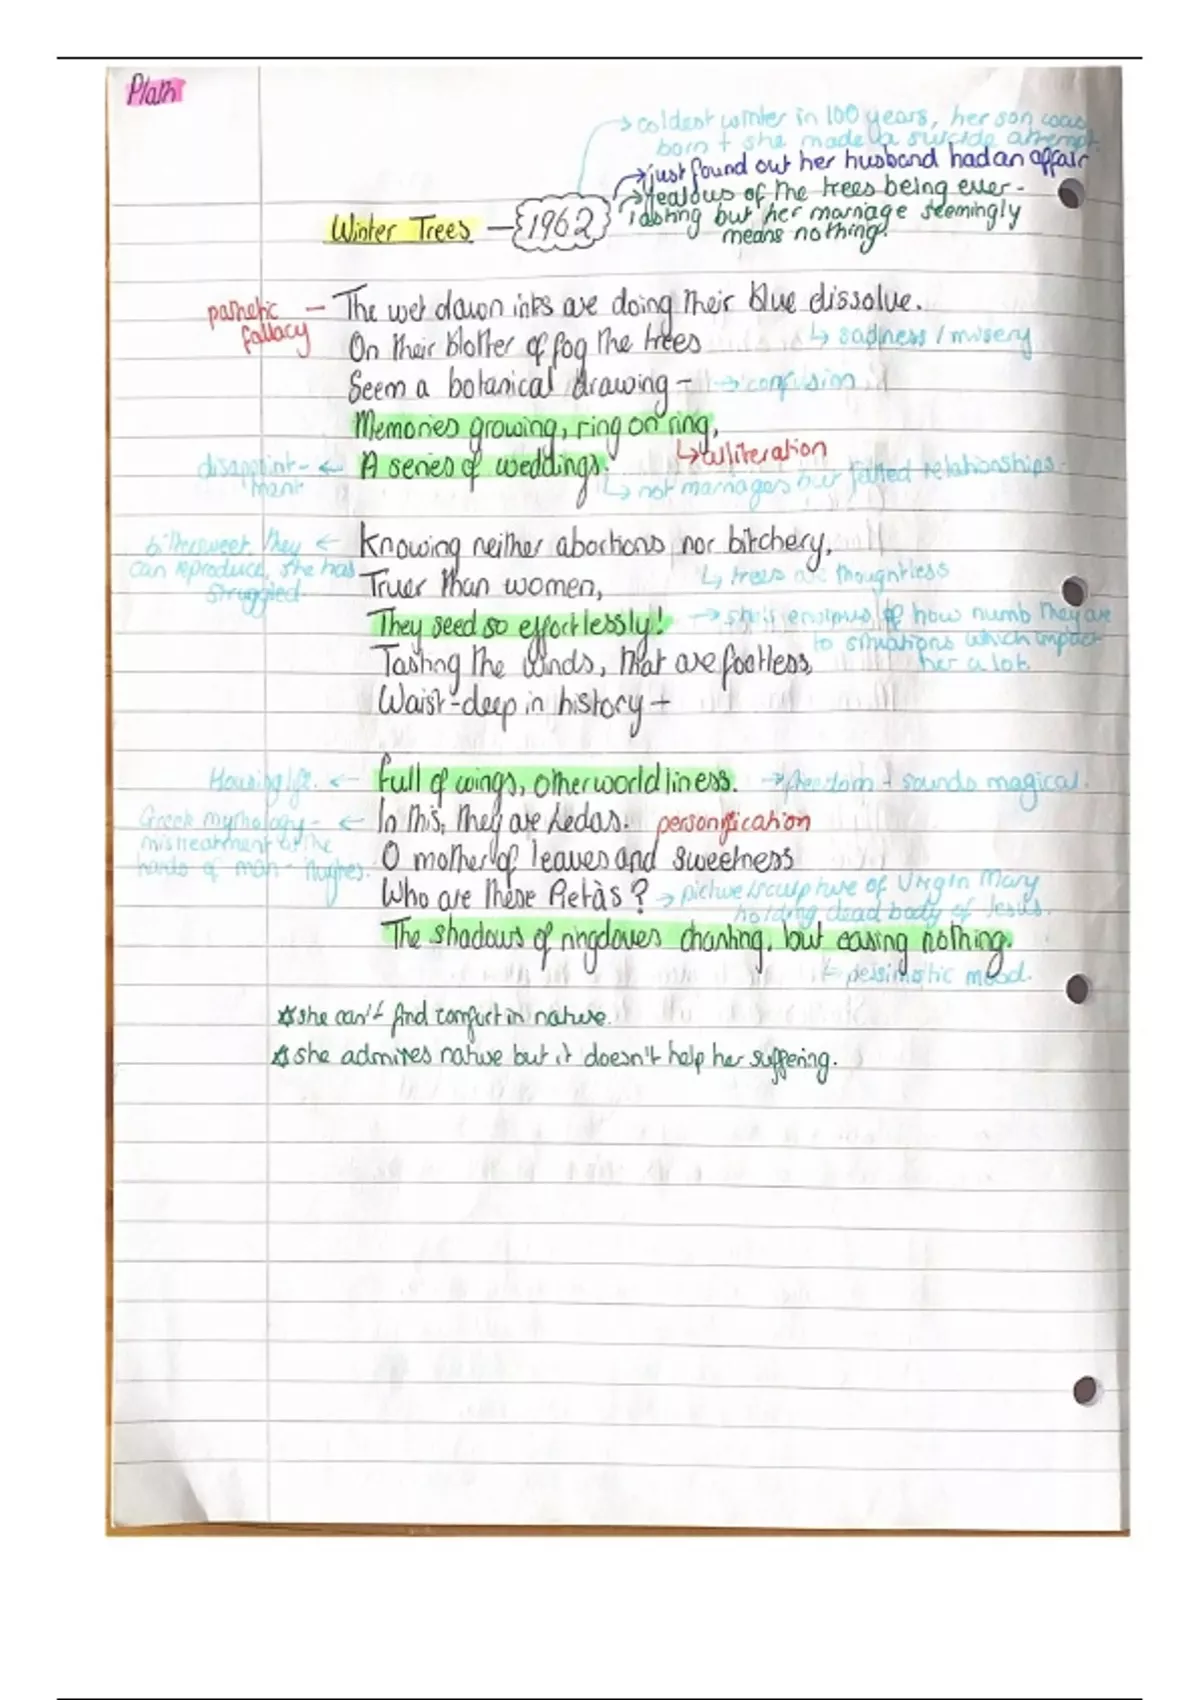 Plath
→ coldest winter in 100 years, her son was
born + she made a suicide attempt.
→ just found out her husband had an affair
→ jealous of the trees being ever-
lasting but her marriage seemingly
means nothing.
Winter Trees — 1962
pathetic
fallacy
— The wet dawn inks are doing their blue dissolve.
↳ sadness / misery
On their blotter of fog the trees
Seem a botanical drawing - → confusion
Memories growing, ring on ring,
↳ alliteration
disappoint- ←
ment
A series of weddings.
↳ not marriages but failed relationships.
bittersweet, they ←
can reproduce, she has
struggled
Knowing neither abortions nor bitchery,
↳ trees are thoughtless
Truer than women,
They seed so effortlessly!
→ she's envious of how numb they are
to situations which impact
her a lot.
Tasting the winds, that are footless,
Waist-deep in history -
←
Full of wings, otherworldliness. → freedom + sounds magical.
Greek mythology - ←
mistreatment at the
hands of man - Hughes.
In this, they are Ledas. personification
O mother of leaves and sweetness
Who are these Pietàs? → picture/sculpture of Virgin Mary
holding dead body of Jesus.
The shadows of ringdoves chanting, but easing nothing.
↳ pessimistic mood.
☆ she can't find comfort in nature.
☆ she admires nature but it doesn't help her suffering.